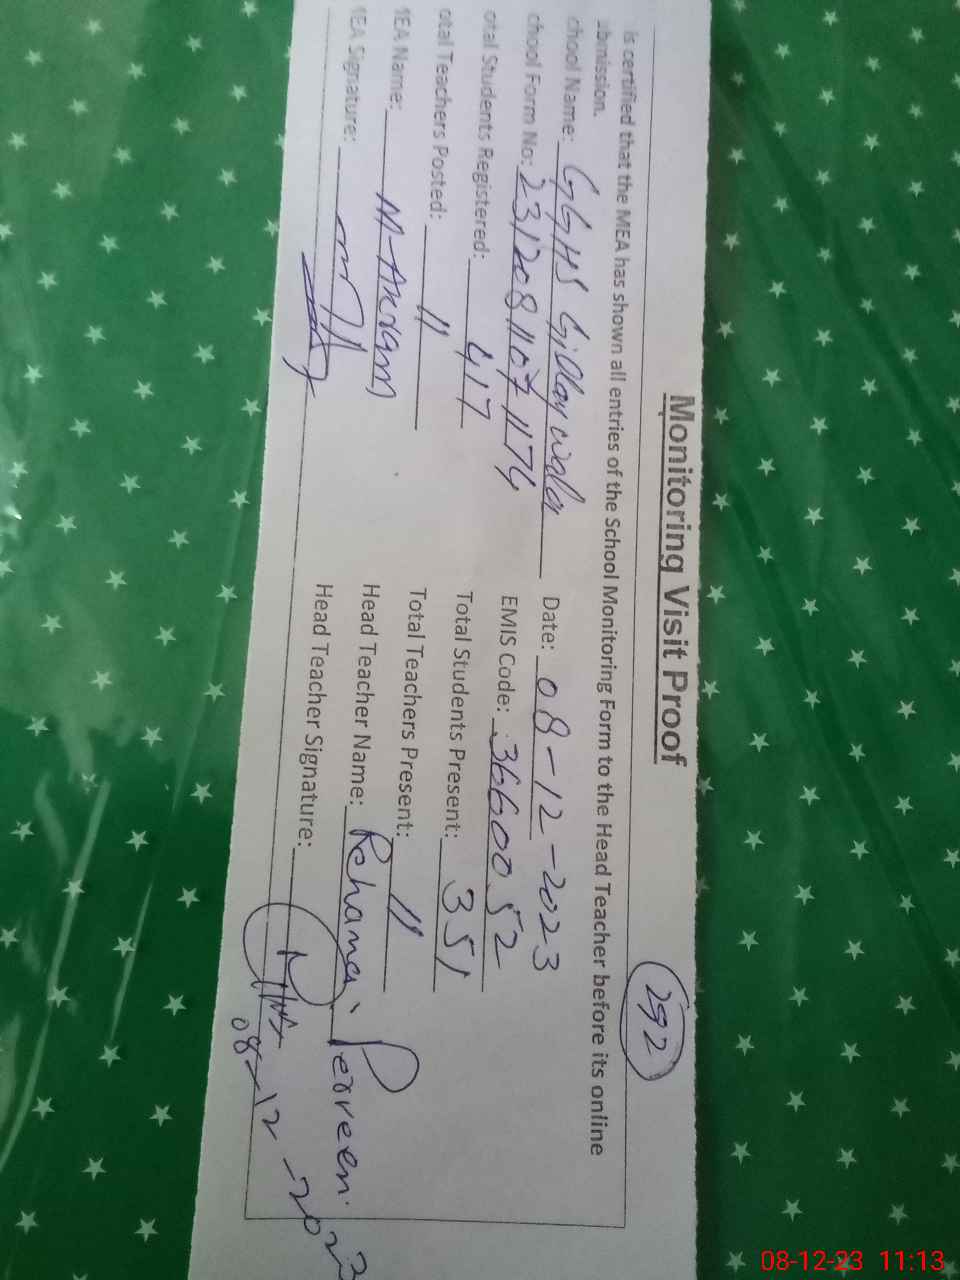 Monitoring Visit Proof
292
is certified that the MEA has shown all entries of the School Monitoring Form to the Head Teacher before its online
ubmission.
chool Name: GGHS Gidaywala Date: 08-12-2023
chool Form No: 231208110711174 EMIS Code: 3660052
otal Students Registered: 417 Total Students Present: 351
otal Teachers Posted: 11 Total Teachers Present: 11
1EA Name: M-Akram Head Teacher Name: Rehana Perveen.
1EA Signature: Head Teacher Signature:
08-12-2023
08-12-23 11:13